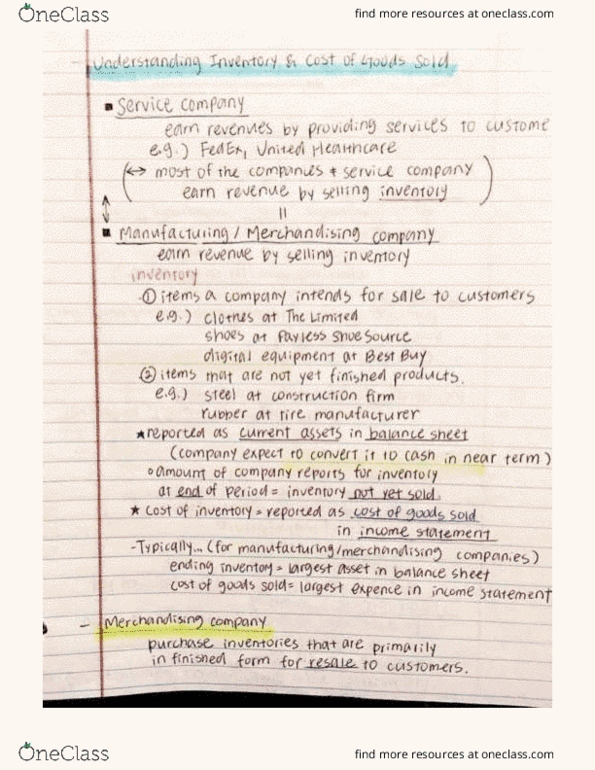 OneClass
find more resources at oneclass.com
- Understanding Inventory & Cost of Goods Sold
■ Service company
earn revenues by providing services to custome
e.g.) FedEx, United Healthcare
(↔ most of the companies ≠ service company
earn revenue by selling inventory)
↕ =
■ Manufacturing / Merchandising company
earn revenue by selling inventory
inventory
① items a company intends for sale to customers
e.g.) clothes at The Limited
shoes at Payless ShoeSource
digital equipment at Best Buy
② items that are not yet finished products.
e.g.) steel at construction firm
rubber at tire manufacturer
★ reported as current assets in balance sheet
(company expect to convert it to cash in near term)
∘ amount of company reports for inventory
at end of period = inventory not yet sold.
★ cost of inventory = reported as cost of goods sold
in income statement
- Typically... (for manufacturing/merchandising companies)
ending inventory = largest asset in balance sheet
cost of goods sold = largest expence in income statement
- Merchandising company
purchase inventories that are primarily
in finished form for resale to customers.
OneClass
find more resources at oneclass.com